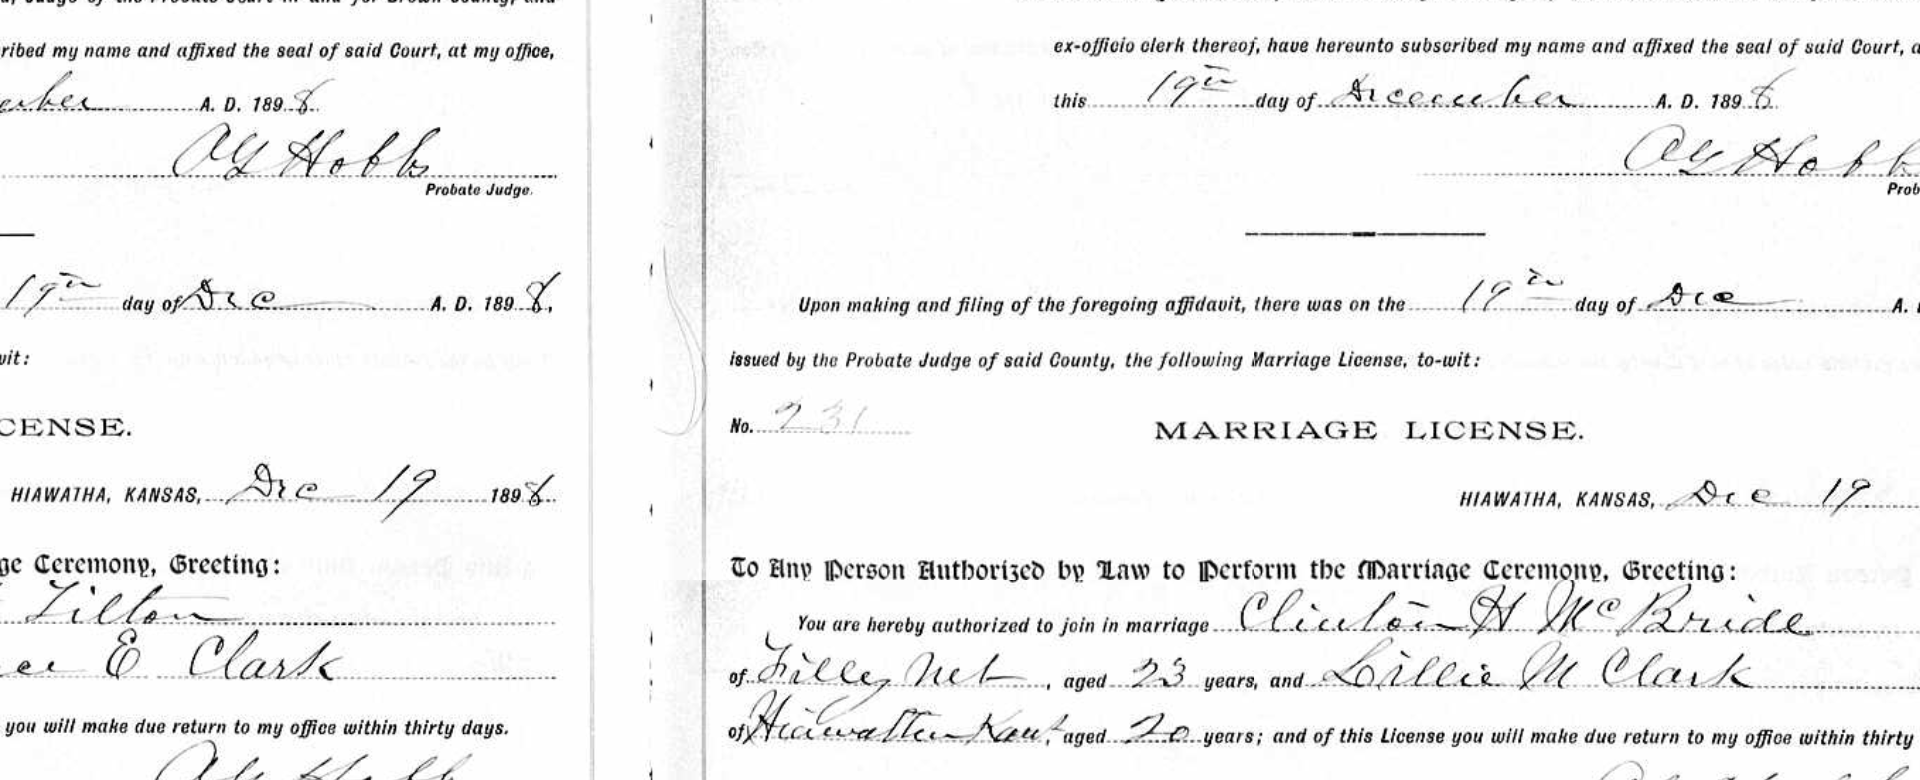 ribed my name and affixed the seal of said Court, at my office,
A. D. 1898
A G Hobbs
Probate Judge.
19th day of Dec A. D. 1898,
wit:
CENSE.
HIAWATHA, KANSAS, Dec 19 1898
ge Ceremony, Greeting:
Tilton
E Clark
you will make due return to my office within thirty days.
ex-officio clerk thereof, have hereunto subscribed my name and affixed the seal of said Court, a
this 19th day of December A. D. 1898
A G Hobb
Prob
Upon making and filing of the foregoing affidavit, there was on the 19th day of Dec A.
issued by the Probate Judge of said County, the following Marriage License, to-wit:
No. 231
MARRIAGE LICENSE.
HIAWATHA, KANSAS, Dec 19
To Any Person Authorized by Law to Perform the Marriage Ceremony, Greeting:
You are hereby authorized to join in marriage Clinton H McBride
of Filley Neb, aged 23 years, and Lillie M Clark
of Hiawatha Kans, aged 20 years; and of this License you will make due return to my office within thirty